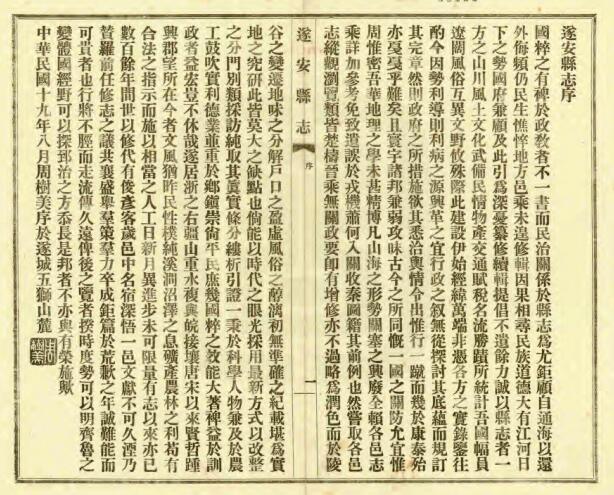 遂安縣志序
國粹之有裨於政教者不一書而民治關係於縣志為尤鉅顧自通海以還
外侮頻仍民生憔悴地方邑乘未遑修輯因果相尋民族道德大有江河日
下之勢國府兼顧及此引為深憂纂修續輯提倡不遺餘力誠以縣志者一
方之山川風土文化武備民情物產交通賦稅名流勝蹟所統計吾國幅員
遼闊風俗互異文野攸殊際此建設伊始經緯萬端非憑各方之實錄鑒往
酌今因勢利導則利病之源興革之宜行政之叙無從探討其底蘊而規訂
其完章然則政府之所措施欲其悉洽輿情令出惟行一蹴而幾於康泰殆
亦戞戞乎難矣且寰宇諸邦兼弱攻昧古今之所同慨一國之關防尤宜惟
周惟密吾華地理之學未甚精博凡山海之形勢關塞之興廢全賴各邑志
乘詳加參考免致遺誤於戎機蕭何入關收秦圖籍其前例也然嘗取各邑
志縱觀瀏覽類皆楚檮晉乘無關政要即有增修亦不過略為潤色而於陵
遂安縣志
序
一
谷之變遷地味之分解戶口之盈虛風俗之醇漓初無準確之紀載堪為實
地之究研此皆莫大之缺點也倘能以時代之眼光採用最新方式以改整
之分門別類採訪純取其眞實條分縷析引證一秉於科學人物兼及於農
工鼓吹實利德業並重於鄉鎭崇尙平民庶幾國粹之效能大著裨益於訓
政者益宏豈不休哉遂居浙之右疆山重水複輿皖接壤唐宋以來賢哲踵
興郡望所在今者文風猶昨民性樸純溪澗沼澤之息礦產農林之利苟有
合法之指示而施以相當之人工日新月異進步未可限量有志以來亦已
數百餘年間世以修代有俊彥客歲邑中名宿深悟一邑文獻不可久湮乃
聱羅前任修志之議共襄盛舉羣策羣力卒成鉅篇於荒歉之年誠難能而
可貴者也行將不脛而走流傳久遠俾後之覽者揆時度勢可以明齊魯之
變體國經野可以探到治之方忝長是邦者不亦與有榮施歟
中華民國十九年八月周樹美序於遂城五獅山麓